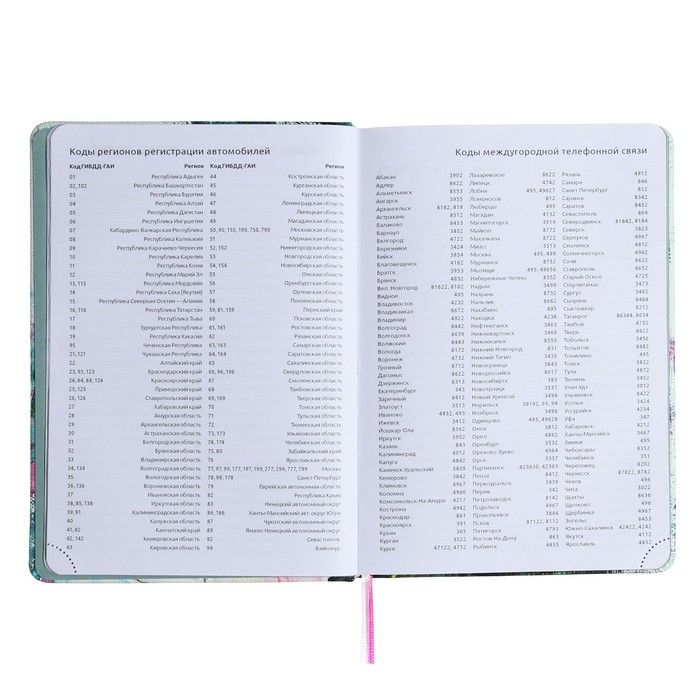 Коды регионов регистрации автомобилей
Код ГИБДД-ГАИ Регион Код ГИБДД-ГАИ Регион
01 Республика Адыгея 44 Костромская область
02, 102 Республика Башкортостан 45 Курганская область
03 Республика Бурятия 46 Курская область
04 Республика Алтай 47 Ленинградская область
05 Республика Дагестан 48 Липецкая область
06 Республика Ингушетия 49 Магаданская область
07 Кабардино-Балкарская Республика 50, 90, 150, 190, 750, 790 Московская область
08 Республика Калмыкия 51 Мурманская область
09 Республика Карачаево-Черкесия 52, 152 Нижегородская область
10 Республика Карелия 53 Новгородская область
11 Республика Коми 54, 154 Новосибирская область
12 Республика Марий Эл 55 Омская область
13, 113 Республика Мордовия 56 Оренбургская область
14 Республика Саха (Якутия) 57 Орловская область
15 Республика Северная Осетия — Алания 58 Пензенская область
16, 116 Республика Татарстан 59, 81, 159 Пермский край
17 Республика Тыва 60 Псковская область
18 Удмуртская Республика 61, 161 Ростовская область
19 Республика Хакасия 62 Рязанская область
95 Чеченская Республика 63, 163 Самарская область
21, 121 Чувашская Республика 64, 164 Саратовская область
22 Алтайский край 65 Сахалинская область
23, 93, 123 Краснодарский край 66, 96, 196 Свердловская область
24, 84, 88, 124 Красноярский край 67 Смоленская область
25, 125 Приморский край 68 Тамбовская область
26, 126 Ставропольский край 69, 169 Тверская область
27 Хабаровский край 70 Томская область
28 Амурская область 71 Тульская область
29 Архангельская область 72 Тюменская область
30 Астраханская область 73, 173 Ульяновская область
31 Белгородская область 74, 174 Челябинская область
32 Брянская область 75, 80 Забайкальский край
33 Владимирская область 76 Ярославская область
34, 134 Волгоградская область 77, 97, 99, 177, 197, 199, 277, 299, 777, 799 Москва
35 Вологодская область 78, 98, 178 Санкт-Петербург
36, 136 Воронежская область 79 Еврейская автономная область
37 Ивановская область 82 Республика Крым
38, 85, 138 Иркутская область 83 Ненецкий автономный округ
39, 91 Калининградская область 86, 186 Ханты-Мансийский авт. округ Югра
40 Калужская область 87 Чукотский автономный округ
41, 82 Камчатский край 89 Ямало-Ненецкий автономный округ
42, 142 Кемеровская область 92 Севастополь
43 Кировская область 94 Байконур
Коды междугородной телефонной связи
Абакан 3902 Лазаревское 8622 Рязань 4912
Адлер 8622 Липецк 4742 Самара 846
Альметьевск 8553 Лобня 495, 49627 Санкт-Петербург 812
Ангарск 3955 Ломоносов 812 Саранск 8342
Архангельск 8182, 818 Люберцы 495 Саратов 8452
Астрахань 8512 Магадан 4132 Севастополь 869
Балаково 8453 Магнитогорск 3519 Северодвинск 81842, 8184
Барнаул 3852 Майкоп 8772 Северск 3823
Белгород 4722 Махачкала 8722 Серпухов 4967
Березники 3424 Миасс 3513 Смоленск 4812
Бийск 3854 Москва 495, 499 Солнечногорск 4962
Благовещенск 4162 Мурманск 8152 Сочи 8622
Братск 3953 Мытищи 495, 49656 Ставрополь 8652
Брянск 4832 Набережные Челны 8552 Старый Оскол 4725
Вел. Новгород 81622, 8162 Надым 3499 Стерлитамак 3473
Видное 495 Назрань 8732 Сургут 3462
Владивосток 4232 Нальчик 8662 Сызрань 8464
Владикавказ 8672 Нахабино 495 Сыктывкар 8212
Владимир 4922 Находка 4236 Таганрог 86344, 8634
Волгоград 8442 Нефтеюганск 3463 Тамбов 4752
Волгодонск 8639 Нижневартовск 3466 Тверь 4822
Волжский 8443 Нижнекамск 8555 Тобольск 3456
Вологда 8172 Нижний Новгород 831 Тольятти 8482
Воронеж 4732 Нижний Тагил 3435 Томилино 495
Грозный 8712 Новокузнецк 3843 Томск 3822
Дагомыс 8622 Новороссийск 8617 Тула 4872
Дзержинск 8313 Новосибирск 383 Тюмень 3452
Екатеринбург 343 Новый Уренгой 3494 Ульяновск 8422
Заречный 8412 Ногинск 49651 Усолье 3424
Златоуст 3513 Норильск Уссурийск 4234
Иваново 4932, 493 Ноябрьск 3496 Уфа 347
Ижевск 3412 Одинцово 495, 49628 Ухта
Йошкар Ола 8362 Омск 3812 Хабаровск 4212
Иркутск 3952 Орел 4862 Ханты-Мансийск 3467
Казань 843 Оренбург 3532 Химки 495
Калининград 4012 Орехово-Зуево 4964 Чебоксары 8352
Калуга 4842 Орск 3537 Челябинск 351
Каменск-Уральский 3439 Партизанск 423630, 42363 Череповец 8202
Кемерово 3842 Пенза 8412 Черкесск 87822, 8782
Климовск 4967 Первоуральск 3439 Чехов 496
Коломна 4966 Пермь 342 Чита 3022
Комсомольск-На-Амуре 4217 Петрозаводск 8142 Шахты 8636
Кострома 4942 Подольск 4967 Щелково 496
Краснодар 861 Прокопьевск 3846 Щербинка 4967
Красноярск 391 Псков 81122, 8112 Энгельс 8453
Крым 365 Пятигорск 8793 Южно-Сахалинск 42422, 4242
Курган 3522 Ростов-На-Дону 863 Якутск 4112
Курск 47122, 4712 Рыбинск 4855 Ярославль 4852